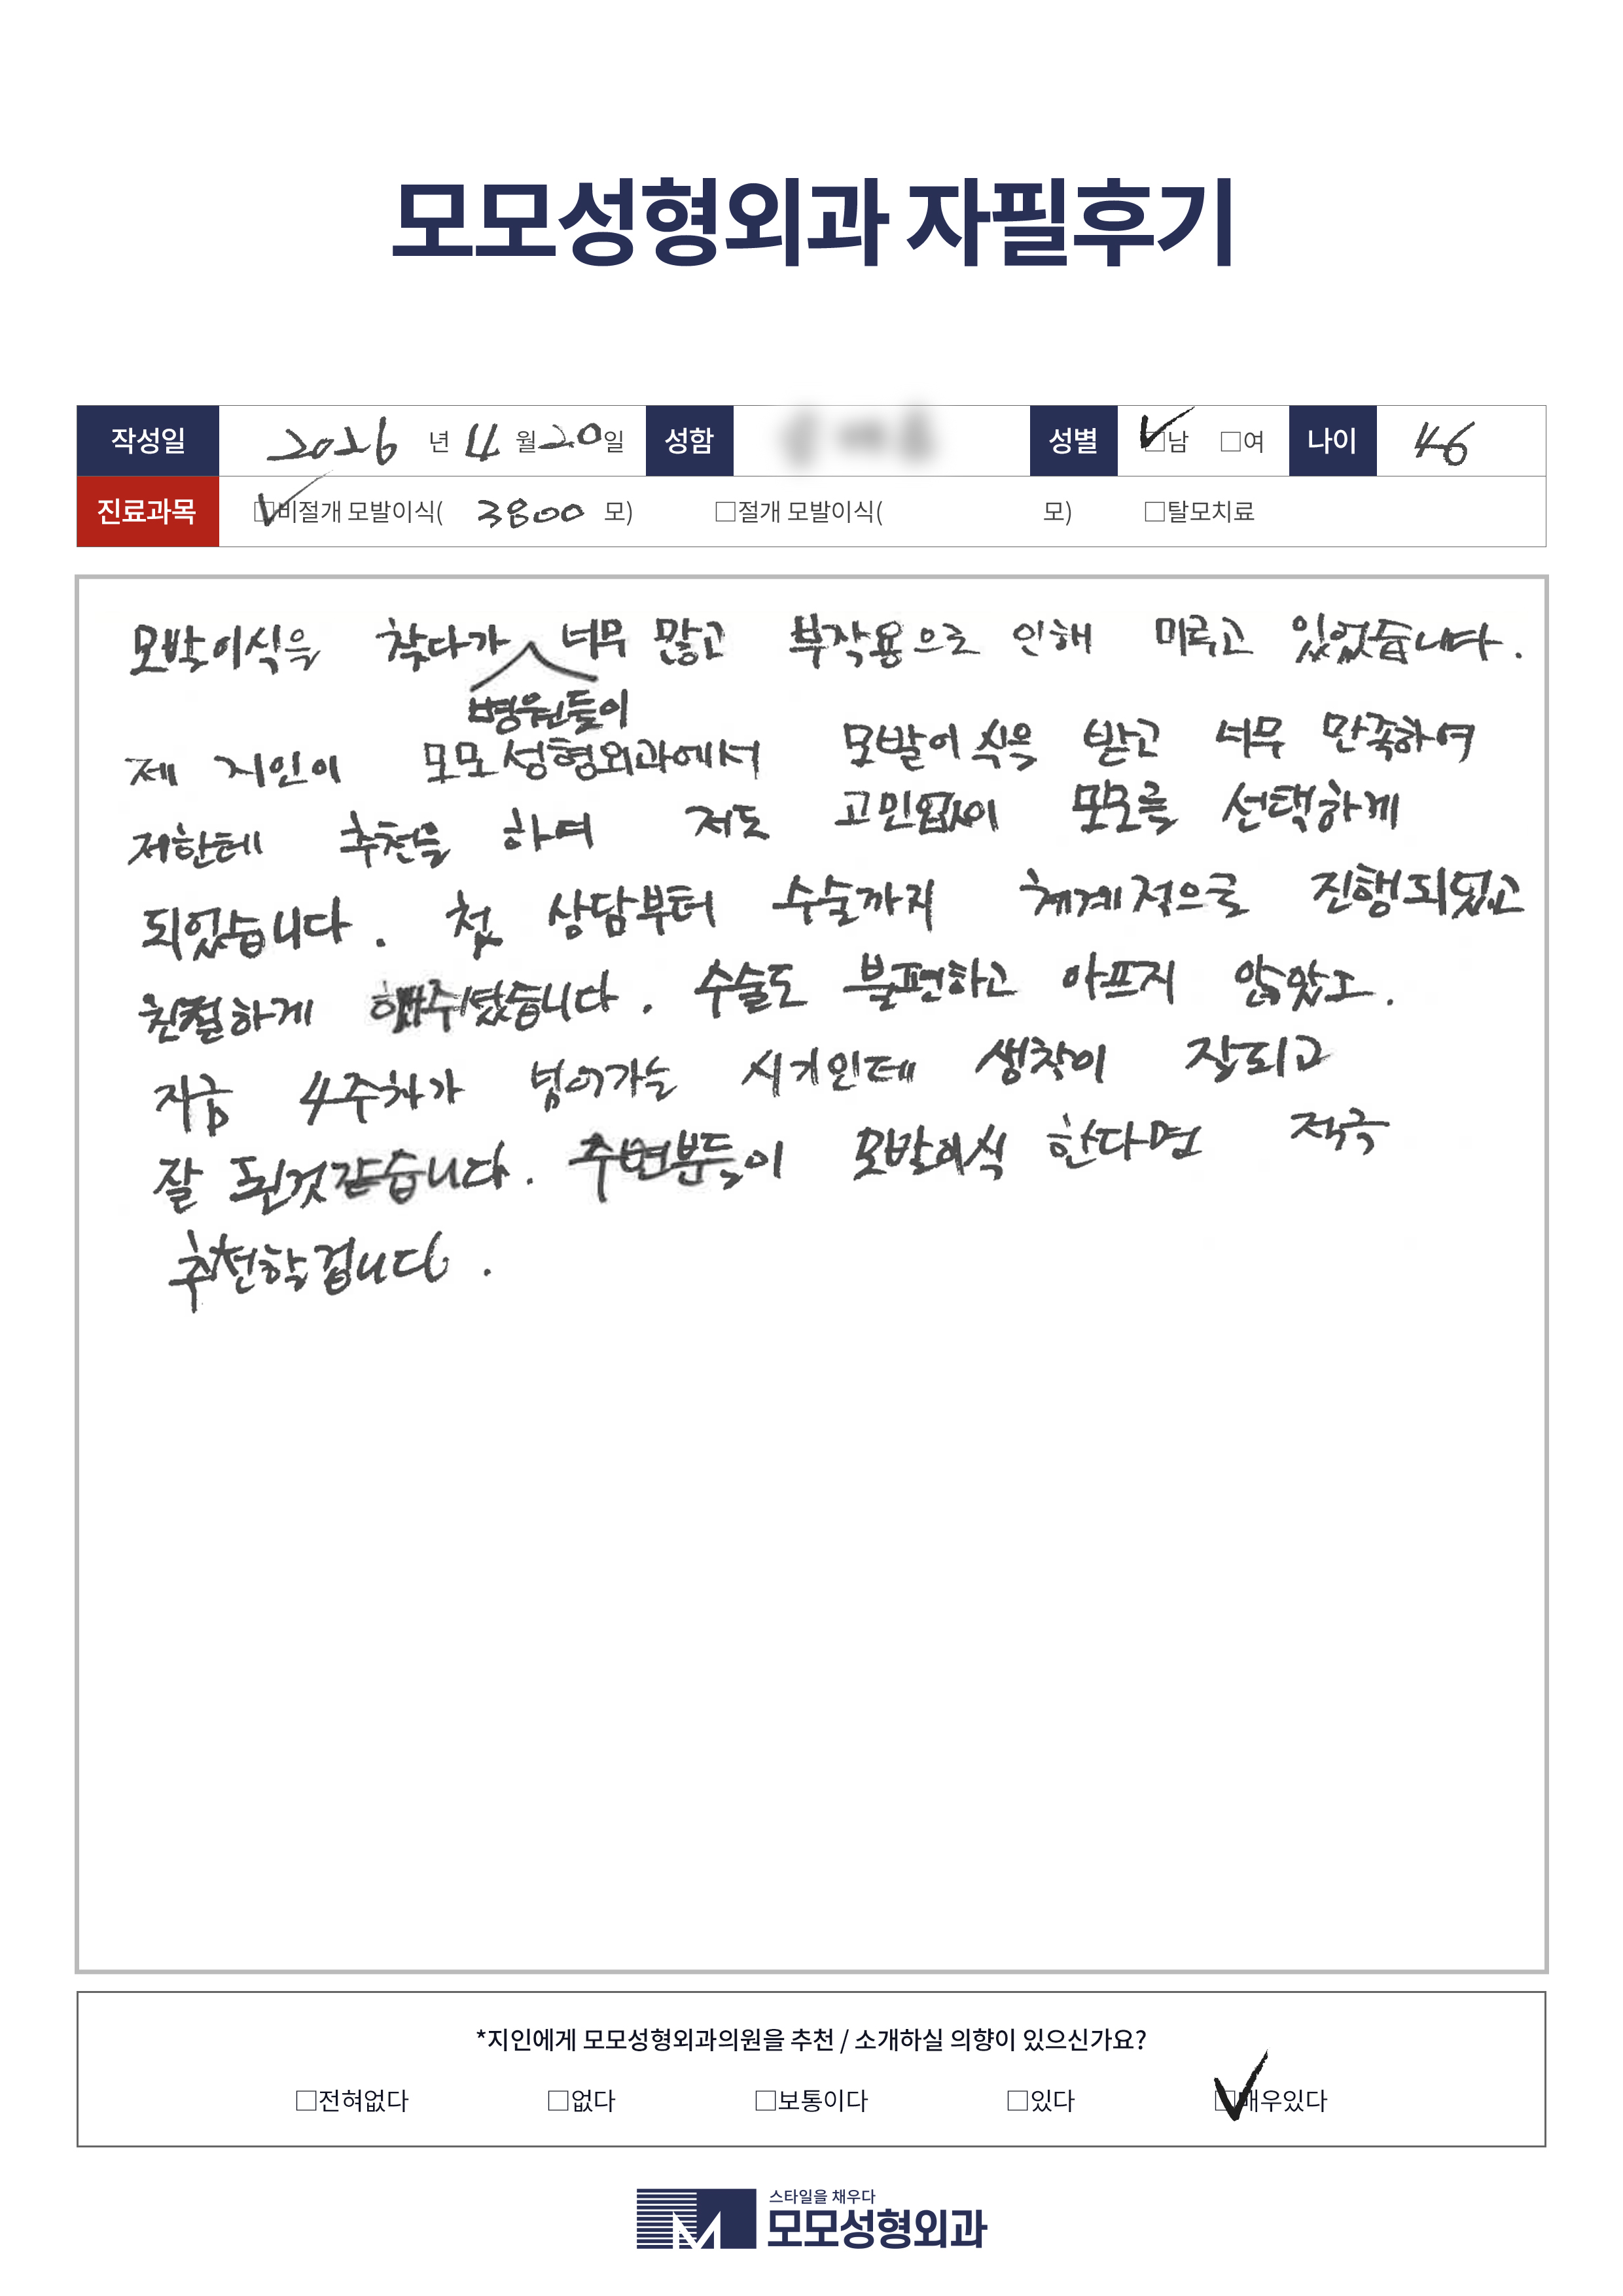 모모성형외과 자필후기
작성일 2026 년 4 월 20 일 성함 성별 □남 □여 나이 46
진료과목 □비절개 모발이식( 3800 모) □절개 모발이식( 모) □탈모치료
모발이식을 찾다가 너무 많고 부작용으로 인해 미루고 있었습니다.
병원들이
제 지인이 모모성형외과에서 모발이식을 받고 너무 만족하여
저한테 추천을 하며 저도 고민없이 모모를 선택하게
되었습니다. 첫 상담부터 수술까지 체계적으로 진행되었고
친절하게 해주셨습니다. 수술도 불편하고 아프지 않았고.
지금 4주차가 넘어가는 시기인데 생착이 잘되고
잘 된것같습니다. 주변분들이 모발이식 한다면 적극
추천할겁니다.
*지인에게 모모성형외과의원을 추천 / 소개하실 의향이 있으신가요?
□전혀없다 □없다 □보통이다 □있다 □매우있다
스타일을 채우다
모모성형외과